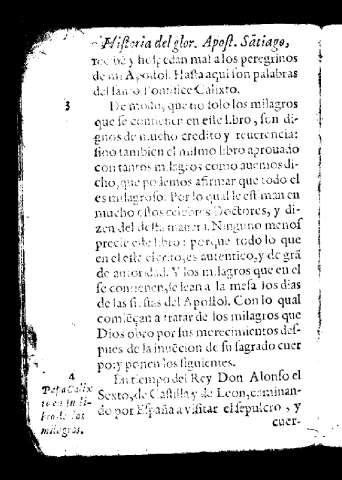 Historia del glor. Apost. Sãtiago,
y hospedan mal a los peregrinos
de mi Apostol. Hasta aqui son palabras
del santo Pontifice Calixto.
3
De modo, que no solo los milagros
que se contienen en este libro, son di-
gnos de mucho credito y reuerencia:
sino tambien el mismo libro aprouado
con tantos milagros como auemos di-
cho, que podemos afirmar que todo el
es milagroso. Por lo qual le estiman en
mucho estos celebres Doctores, y di-
zen del desta manera. Ninguno menos
precie este libro: porque todo lo que
en el este cierto, es autentico, y de grã
de autoridad. Y los milagros que en el
se contienen, se lean a la mesa los dias
de las fiestas del Apostol. Con lo qual
comiẽçan a tratar de los milagros que
Dios obro por sus merecimientos des-
pues de la inuẽcion de su sagrado cuer
po: y ponen los siguientes.
4
Papa Calix
to en su li-
bro de los
milagros.
En tiempo del Rey Don Alonso el
Sexto, de Castilla y de Leon, caminan-
do por España a visitar el sepulcro, y
cuer-